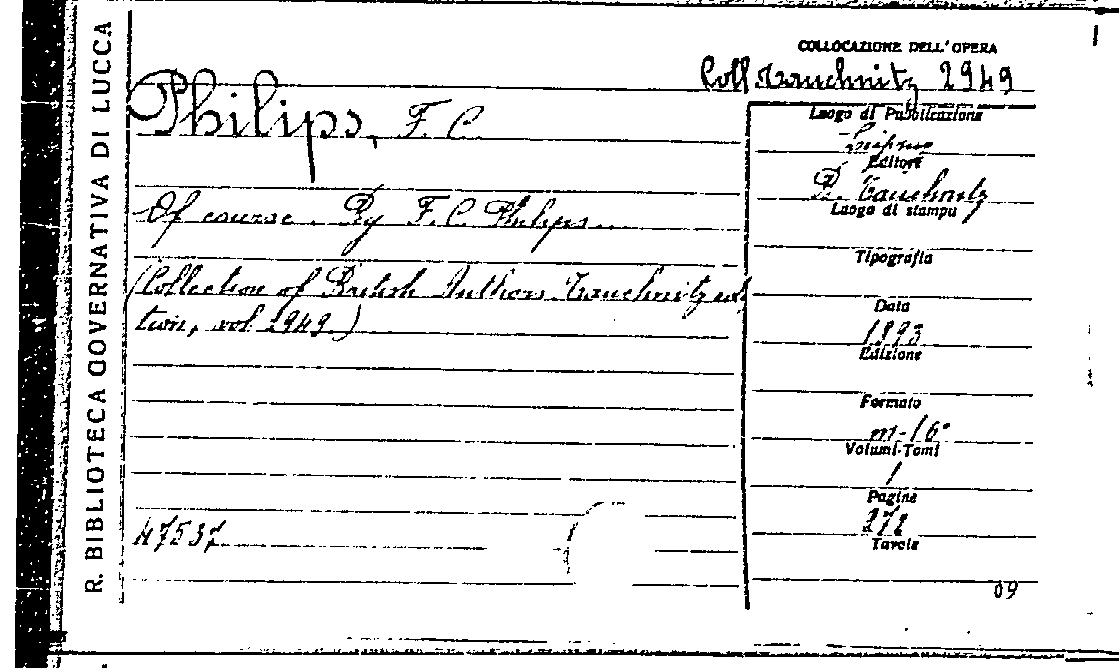 R. BIBLIOTECA GOVERNATIVA DI LUCCA
COLLOCAZIONE DELL'OPERA
Coll Tauchnitz 2949
Philips, F. C.
Of course. By F. C. Philips.
(Collection of British Authors Tauchnitz edi
tion, vol 2949.)
47537
Luogo di Pubblicazione
Editore
B. Tauchnitz
Luogo di stampa
Tipografia
Data
1893
Edizione
Formato
m-16°
Volumi-Tomi
1
Pagine
272
Tavole
09